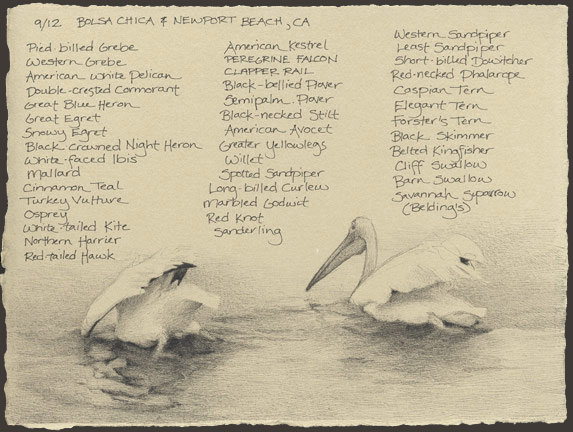 9/12 BOLSA CHICA & NEWPORT BEACH, CA
Pied-billed Grebe
Western Grebe
American White Pelican
Double-crested Cormorant
Great Blue Heron
Great Egret
Snowy Egret
Black-crowned Night Heron
White-faced Ibis
Mallard
Cinnamon Teal
Turkey Vulture
Osprey
White-tailed Kite
Northern Harrier
Red-tailed Hawk
American Kestrel
PEREGRINE FALCON
CLAPPER RAIL
Black-bellied Plover
Semipalm. Plover
Black-necked Stilt
American Avocet
Greater Yellowlegs
Willet
Spotted Sandpiper
Long-billed Curlew
Marbled Godwit
Red Knot
Sanderling
Western Sandpiper
Least Sandpiper
Short-billed Dowitcher
Red-necked Phalarope
Caspian Tern
Elegant Tern
Forster's Tern
Black Skimmer
Belted Kingfisher
Cliff Swallow
Barn Swallow
Savannah Sparrow
(Belding's)